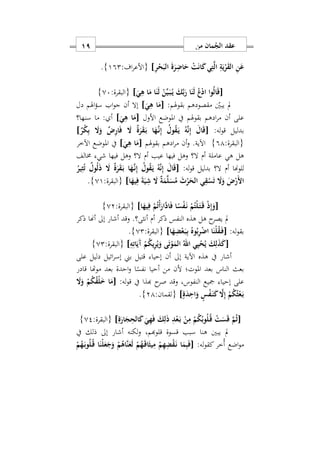 عقد الجُمان من
١٩
عَنِ الْقَرْيَةِ الَّتِي كَانَتْ حَاضِرَةَ الْبَحْرِ] {الأعراف:١٦٣}.
[قَالُوا ادْعُ لَنَا رَبَّكَ يُبَيِّنْ لَنَا مَا هِيَ] {البقرة:٧٠}
لم يبيّن مقصودهم بقولهم: [مَا هِيَ] إلا أن جواب سؤالهم دل
على أن مرادهم بقولهم في الموضع الأول [مَا هِيَ] أي: ما سنها؟
بدليل قوله: [قَالَ إِنَّهُ يَقُولُ إِنَّهَا بَقَرَةٌ لَا فَارِضٌ وَلَا بِكْرٌ]
{البقرة:٦٨} الآية. وأن مرادهم بقولهم [مَا هِيَ] في الموضع الآخر
هل هي عاملة أم لا؟ وهل فيها عيب أم لا؟ وهل فيها شيء مخالف
للونها أم لا؟ بدليل قوله: [قَالَ إِنَّهُ يَقُولُ إِنَّهَا بَقَرَةٌ لَا ذَلُولٌ تُثِيرُ
الْأَرْضَ وَلَا تَسْقِي الْحَرْثَ مُسَلَّمَةٌ لَا شِيَةَ فِيهَا] {البقرة:٧١}.
[وَإِذْ قَتَلْتُمْ نَفْسًا فَادَّارَأْتُمْ فِيهَا] {البقرة:٧٢}
لم يصرح هل هذه النفس ذكر أم أنثى؟. وقد أشار إلى أنها ذكر
بقوله: [فَقُلْنَا اضْرِبُوهُ بِبَعْضِهَا] {البقرة:٧٣}.
[كَذَلِكَ يُحْيِي اللهُ الْمَوْتَى وَيُرِيكُمْ آَيَاتِهِ] {البقرة:٧٣}
أشار في هذه الآية إلى أن إحياء قتيل بني إسرائيل دليل على
بعث الناس بعد الموت؛ لأن من أحيا نفسًا واحدة بعد موتها قادر
على إحياء جميع النفوس، وقد صرح بهذا في قوله: [مَا خَلْقُكُمْ وَلَا
بَعْثُكُمْ إِلَّا كَنَفْسٍ وَاحِدَةٍ] {لقمان:٢٨}.
[ثُمَّ قَسَتْ قُلُوبُكُمْ مِنْ بَعْدِ ذَلِكَ فَهِيَ كَالْحِجَارَةِ] {البقرة:٧٤}
لم يبين هنا سبب قسوة قلوبهم، ولكنه أشار إلى ذلك في
مواضع أخر كقوله: [فَبِمَا نَقْضِهِمْ مِيثَاقَهُمْ لَعَنَّاهُمْ وَجَعَلْنَا قُلُوبَهُمْ